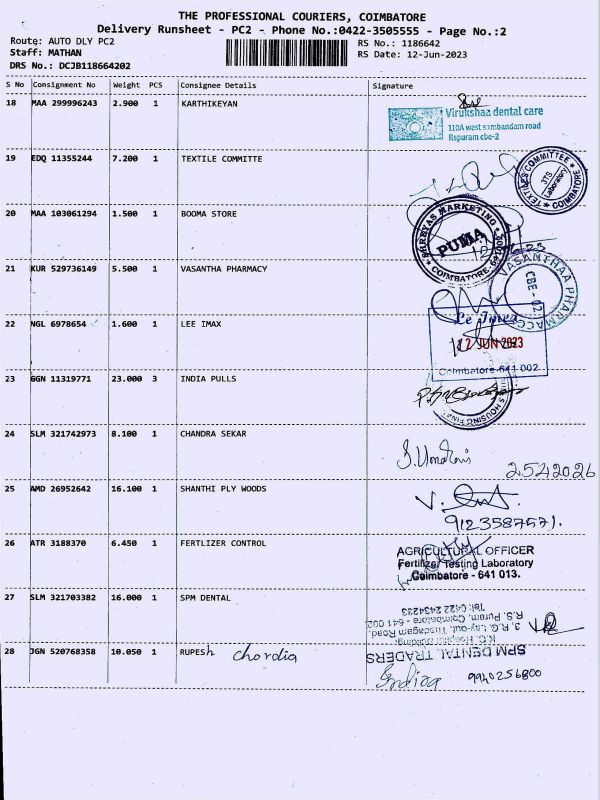 THE PROFESSIONAL COURIERS, COIMBATORE
Delivery Runsheet - PC2 - Phone No.:0422-3505555 - Page No.:2
Route: AUTO DLY PC2 RS No.: 1186642
Staff: MATHAN RS Date: 12-Jun-2023
DRS No.: DCJB118664202
S No Consignment No Weight PCS Consignee Details Signature
18 MAA 299996243 2.900 1 KARTHIKEYAN
Virukshaa dental care
110A west sambandam road
Rspuram cbe-2
19 EDQ 11355244 7.200 1 TEXTILE COMMITTE
TEXTILES COMMITTEE
Laboratory
COIMBATORE
20 MAA 103061294 1.500 1 BOOMA STORE
SHREYAS MARKETING
PUMA
COIMBATORE 641002
21 KUR 529736149 5.500 1 VASANTHA PHARMACY
VASANTHAA PHARMACY
CBE - 02
22 NGL 6978654 1.600 1 LEE IMAX
12 JUN 2023
Coimbatore-641 002
23 GGN 11319771 23.000 3 INDIA PULLS
HOUSING FINA
24 SLM 321742973 8.100 1 CHANDRA SEKAR
2542026
25 AMD 26952642 16.100 1 SHANTHI PLY WOODS
9123587571.
26 ATR 3188370 6.450 1 FERTLIZER CONTROL
AGRICULTURAL OFFICER
Fertilizer Testing Laboratory
Coimbatore - 641 013.
27 SLM 321703382 16.000 1 SPM DENTAL
SPM DENTAL TRADERS
K.G. Hospital Building,
3, R.G. Lay-out, Thadagam Road,
R.S. Puram, Coimbatore - 641 002
Tel: 0422 2434223
28 JGN 520768358 10.050 1 RUPESH chordia
9940256800